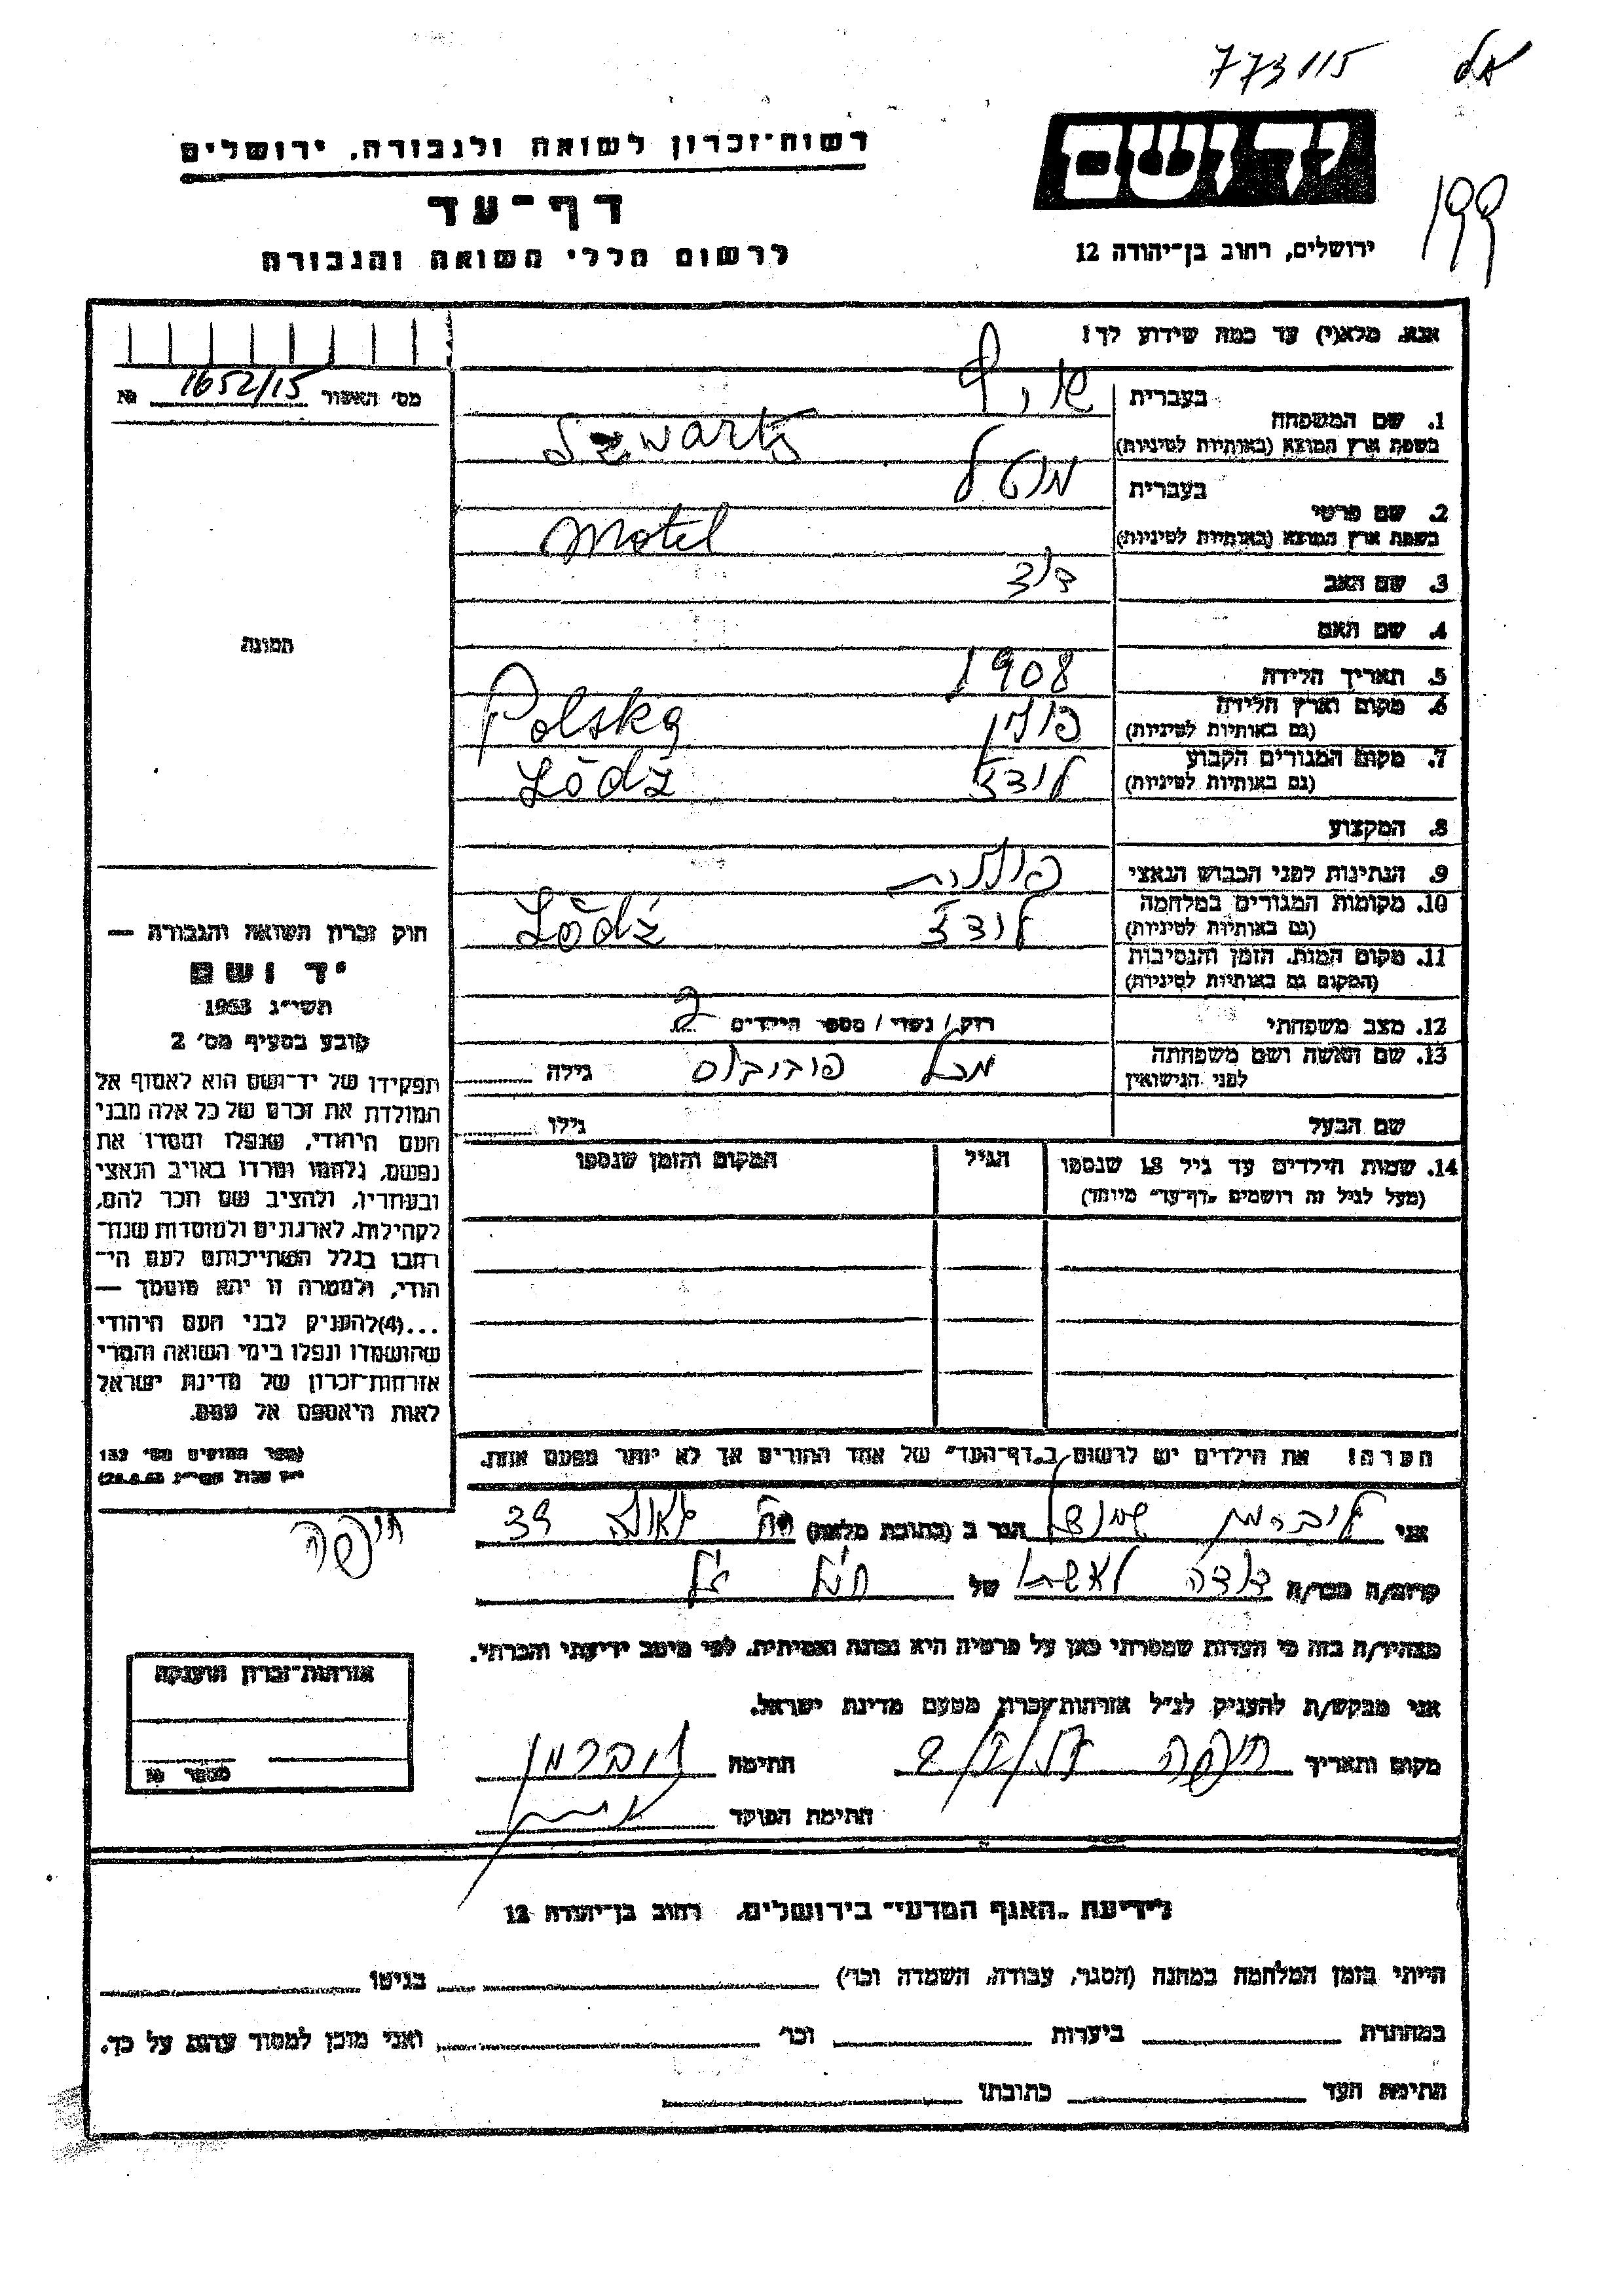 773115
199
יד ושם
ירושלים, רחוב בן־יהודה 12
רשות־זכרון לשואה ולגבורה, ירושלים
דף־עד
לרשום חללי השואה והגבורה
אנא, מלא(י) עד כמה שידוע לך!
מס׳ האשור 1652/15 №
1. שם המשפחה
בעברית
בשפת ארץ המוצא (באותיות לטיניות) Szwartz
2. שם פרטי
בעברית מוטל
בשפת ארץ המוצא (באותיות לטיניות) Motel
3. שם האב דוד
4. שם האם
5. תאריך הלידה 1908
6. מקום וארץ הלידה פולין Polska
(גם באותיות לטיניות)
7. מקום המגורים הקבוע לודז Łódź
(גם באותיות לטיניות)
8. המקצוע
9. הנתינות לפני הכבוש הנאצי פולנית
10. מקומות המגורים במלחמה לודז Łódź
(גם באותיות לטיניות)
11. מקום המות, הזמן והנסיבות
(המקום גם באותיות לטיניות)
12. מצב משפחתי רווק / נשוי / מספר הילדים 2
13. שם האשה ושם משפחתה
לפני הנישואין גילה
שם הבעל גילו
14. שמות הילדים עד גיל 18 שנספו הגיל המקום והזמן שנספו
(מעל לגיל זה רושמים "דף־עד" מיוחד)
הערה: את הילדים יש לרשום ב"דף־העד" של אחד ההורים אך לא יותר מפעם אחת.
תמונה
חוק זכרון השואה והגבורה —
יד ושם
תשי״ג 1953
קובע בסעיף מס׳ 2
תפקידו של יד־ושם הוא לאסוף אל
המולדת את זכרם של כל אלה מבני
העם היהודי, שנפלו ומסרו את
נפשם, נלחמו ומרדו באויב הנאצי
ובעוזריו, ולהציב שם וזכר להם,
לקהילות, לארגונים ולמוסדות שנח־
רבו בגלל השתייכותם לעם הי־
הודי, ולמטרה זו יהא מוסמך —
...(4)להעניק לבני העם היהודי
שהושמדו ונפלו בימי השואה והמרי
אזרחות־זכרון של מדינת ישראל
לאות היאספם אל עמם.
(ספר החוקים מס׳ 132
חיפה
אני ליברמן הגר ב (כתובת מלאה) גאולה 39
קרוב/ה מכר/ה דודה של
מצהיר/ה בזה כי העדות שמסרתי כאן על פרטיה היא נכונה ואמיתית, לפי מיטב ידיעתי והכרתי.
אני מבקש/ת להעניק לנ״ל אזרחות־זכרון מטעם מדינת ישראל.
מקום ותאריך חיפה חתימה ליברמן
חתימת הפוקד
אזרחות־זכרון הוענקה
מספר №
לידיעת "האגף המדעי" בירושלים, רחוב בן־יהודה 12
הייתי בזמן המלחמה במחנה (הסגר, עבודה, השמדה וכו׳) בגיטו
במחתרת ביערות וכו׳ ואני מוכן למסור עדות על כך.
חתימת העד כתובתו